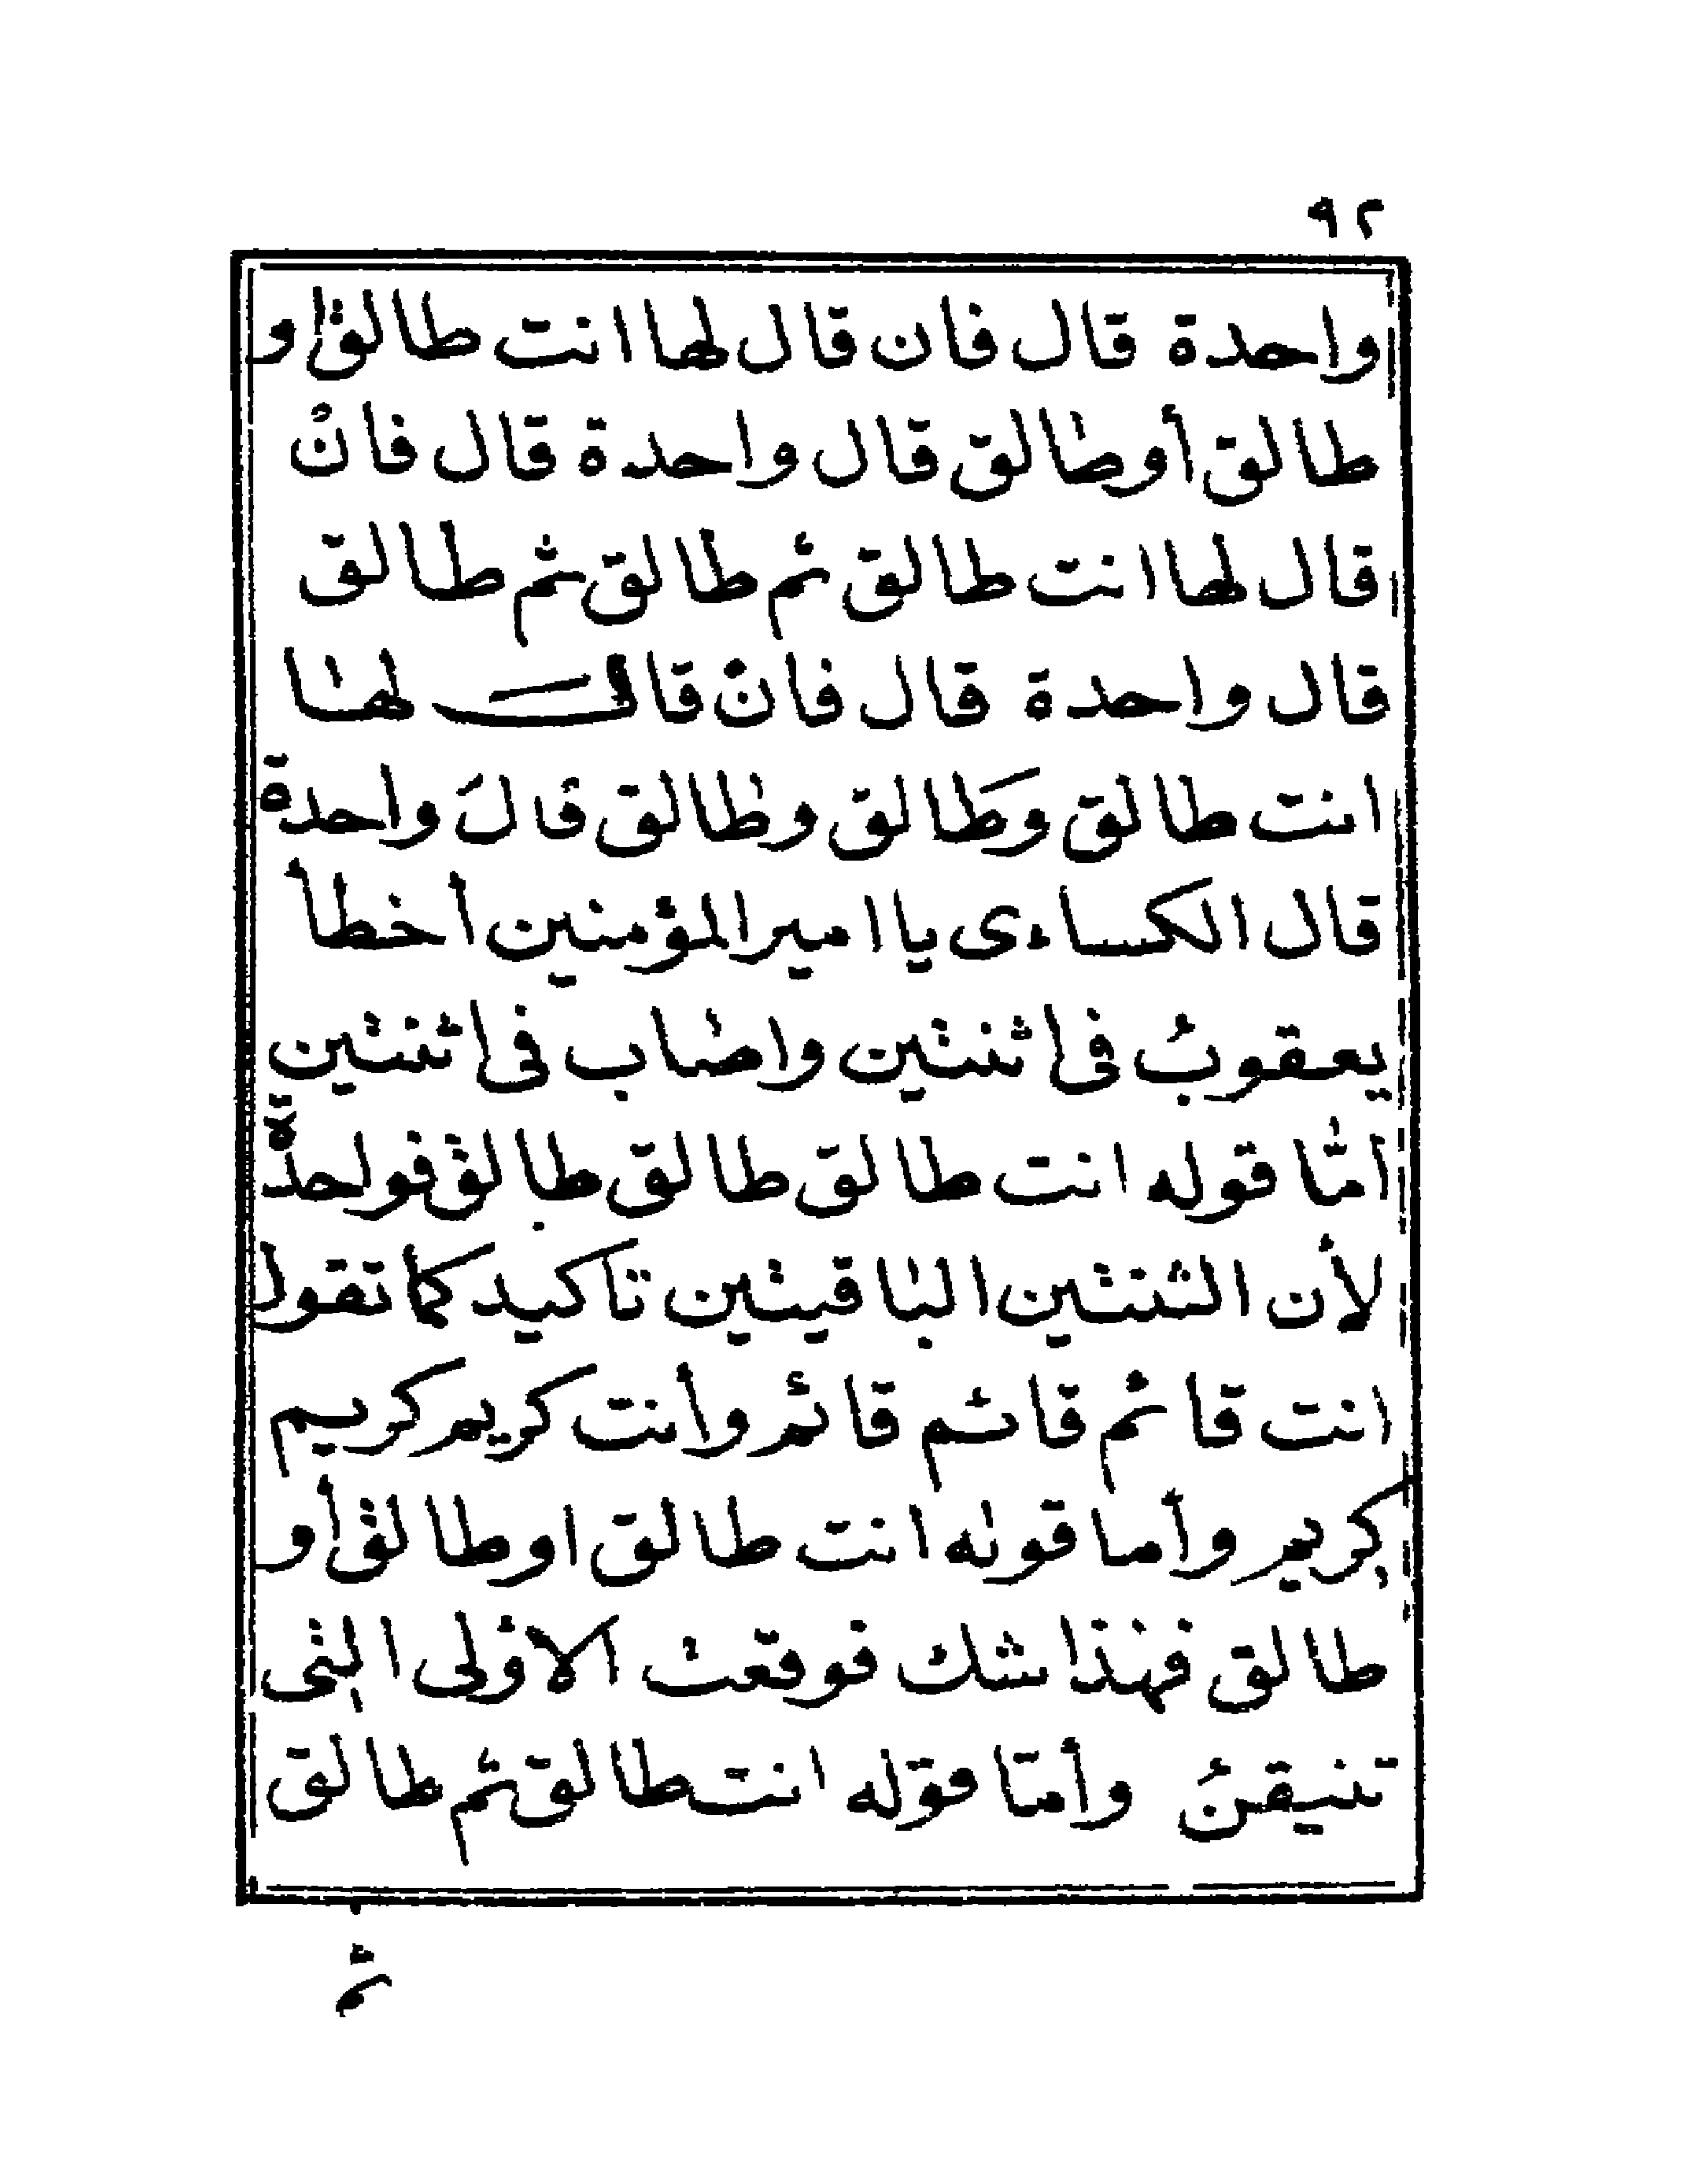 ٩٢
واحدة قال فان قال لها انت طالق او
طالق أو طالق قال واحدة قال فان
قال لها انت طالق ثم طالق ثم طالق
قال واحدة قال فان قال لها
انت طالق وطالق وطالق قال واحدة
قال الكساءى يا امير المؤمنين أخطأ
يعقوب فى اثنتين واصاب فى اثنتين
امّا قوله انت طالق طالق طالق فواحدة
لأن الثنتين الباقيتين تاكيد كما تقول
انت قائم قائم قائم وأنت كريم كريم
كريم وأما قوله انت طالق او طالق أو
طالق فهذا شك فوقعت الاولى التى
تتيقن وأمّا قوله انت طالق ثم طالق
ثم